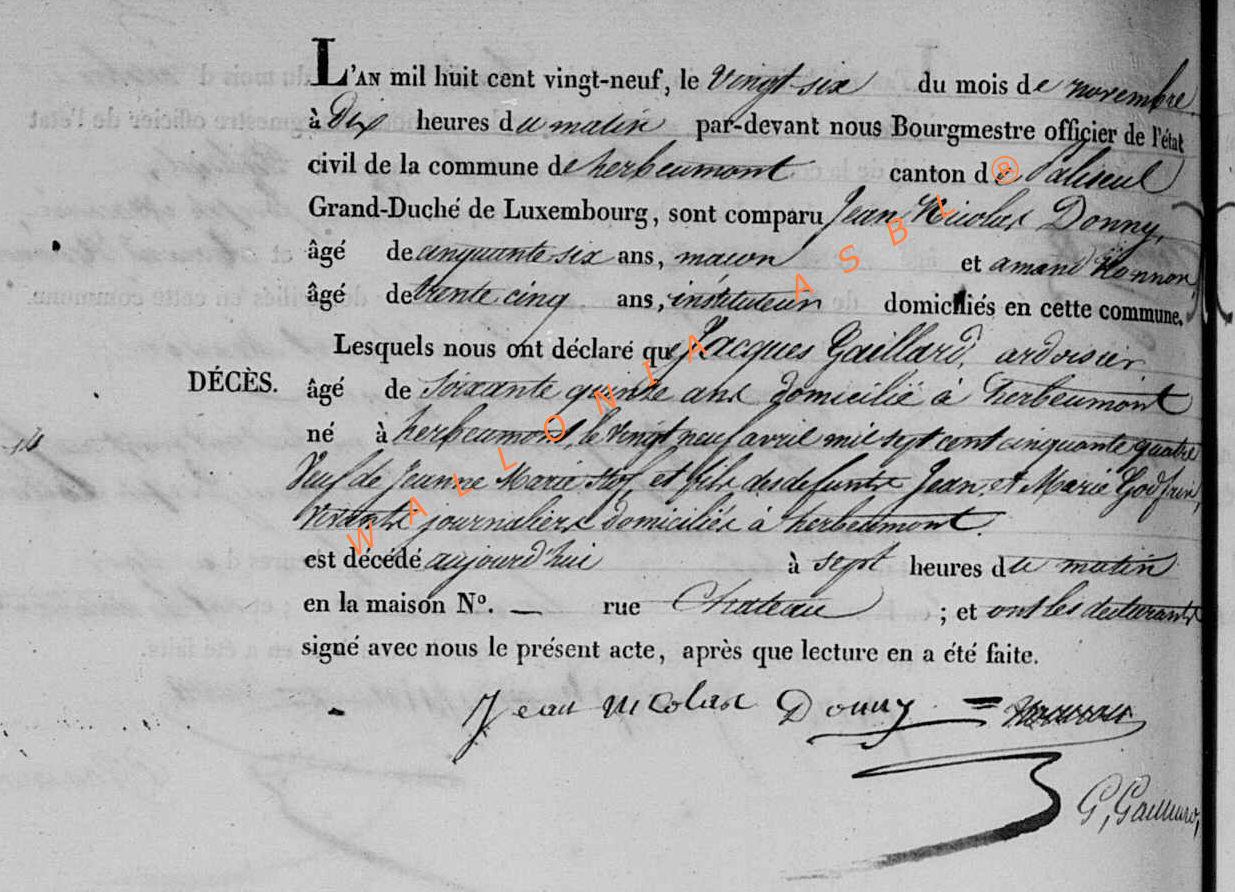 L'AN mil huit cent vingt-neuf, le vingt six du mois de novembre
à Dix heures du matin par-devant nous Bourgmestre officier de l'état
civil de la commune de herbeumont canton de Paliseul
Grand-Duché de Luxembourg, sont comparu Jean Nicolas Donny,
âgé de cinquante six ans, maçon et amand
âgé de trente cinq ans, instituteur domiciliés en cette commune.
Lesquels nous ont déclaré que Jacques Gaillard, ardoisier
DÉCÈS. âgé de soixante quinze ans domicilié à herbeumont
né à herbeumont, le vingt neuf avril mil sept cent cinquante quatre
Veuf de Jeanne Marie et fils des defunts Jean et Marie Godfrin,
vivants journaliers domiciliés à herbeumont.
est décédé aujourd'hui à sept heures du matin
en la maison N°. — rue Chateau ; et ont les declarants
signé avec nous le présent acte, après que lecture en a été faite.
Jean nicolas Donny
G, Gaillard,
WALLONIA ASBL ®